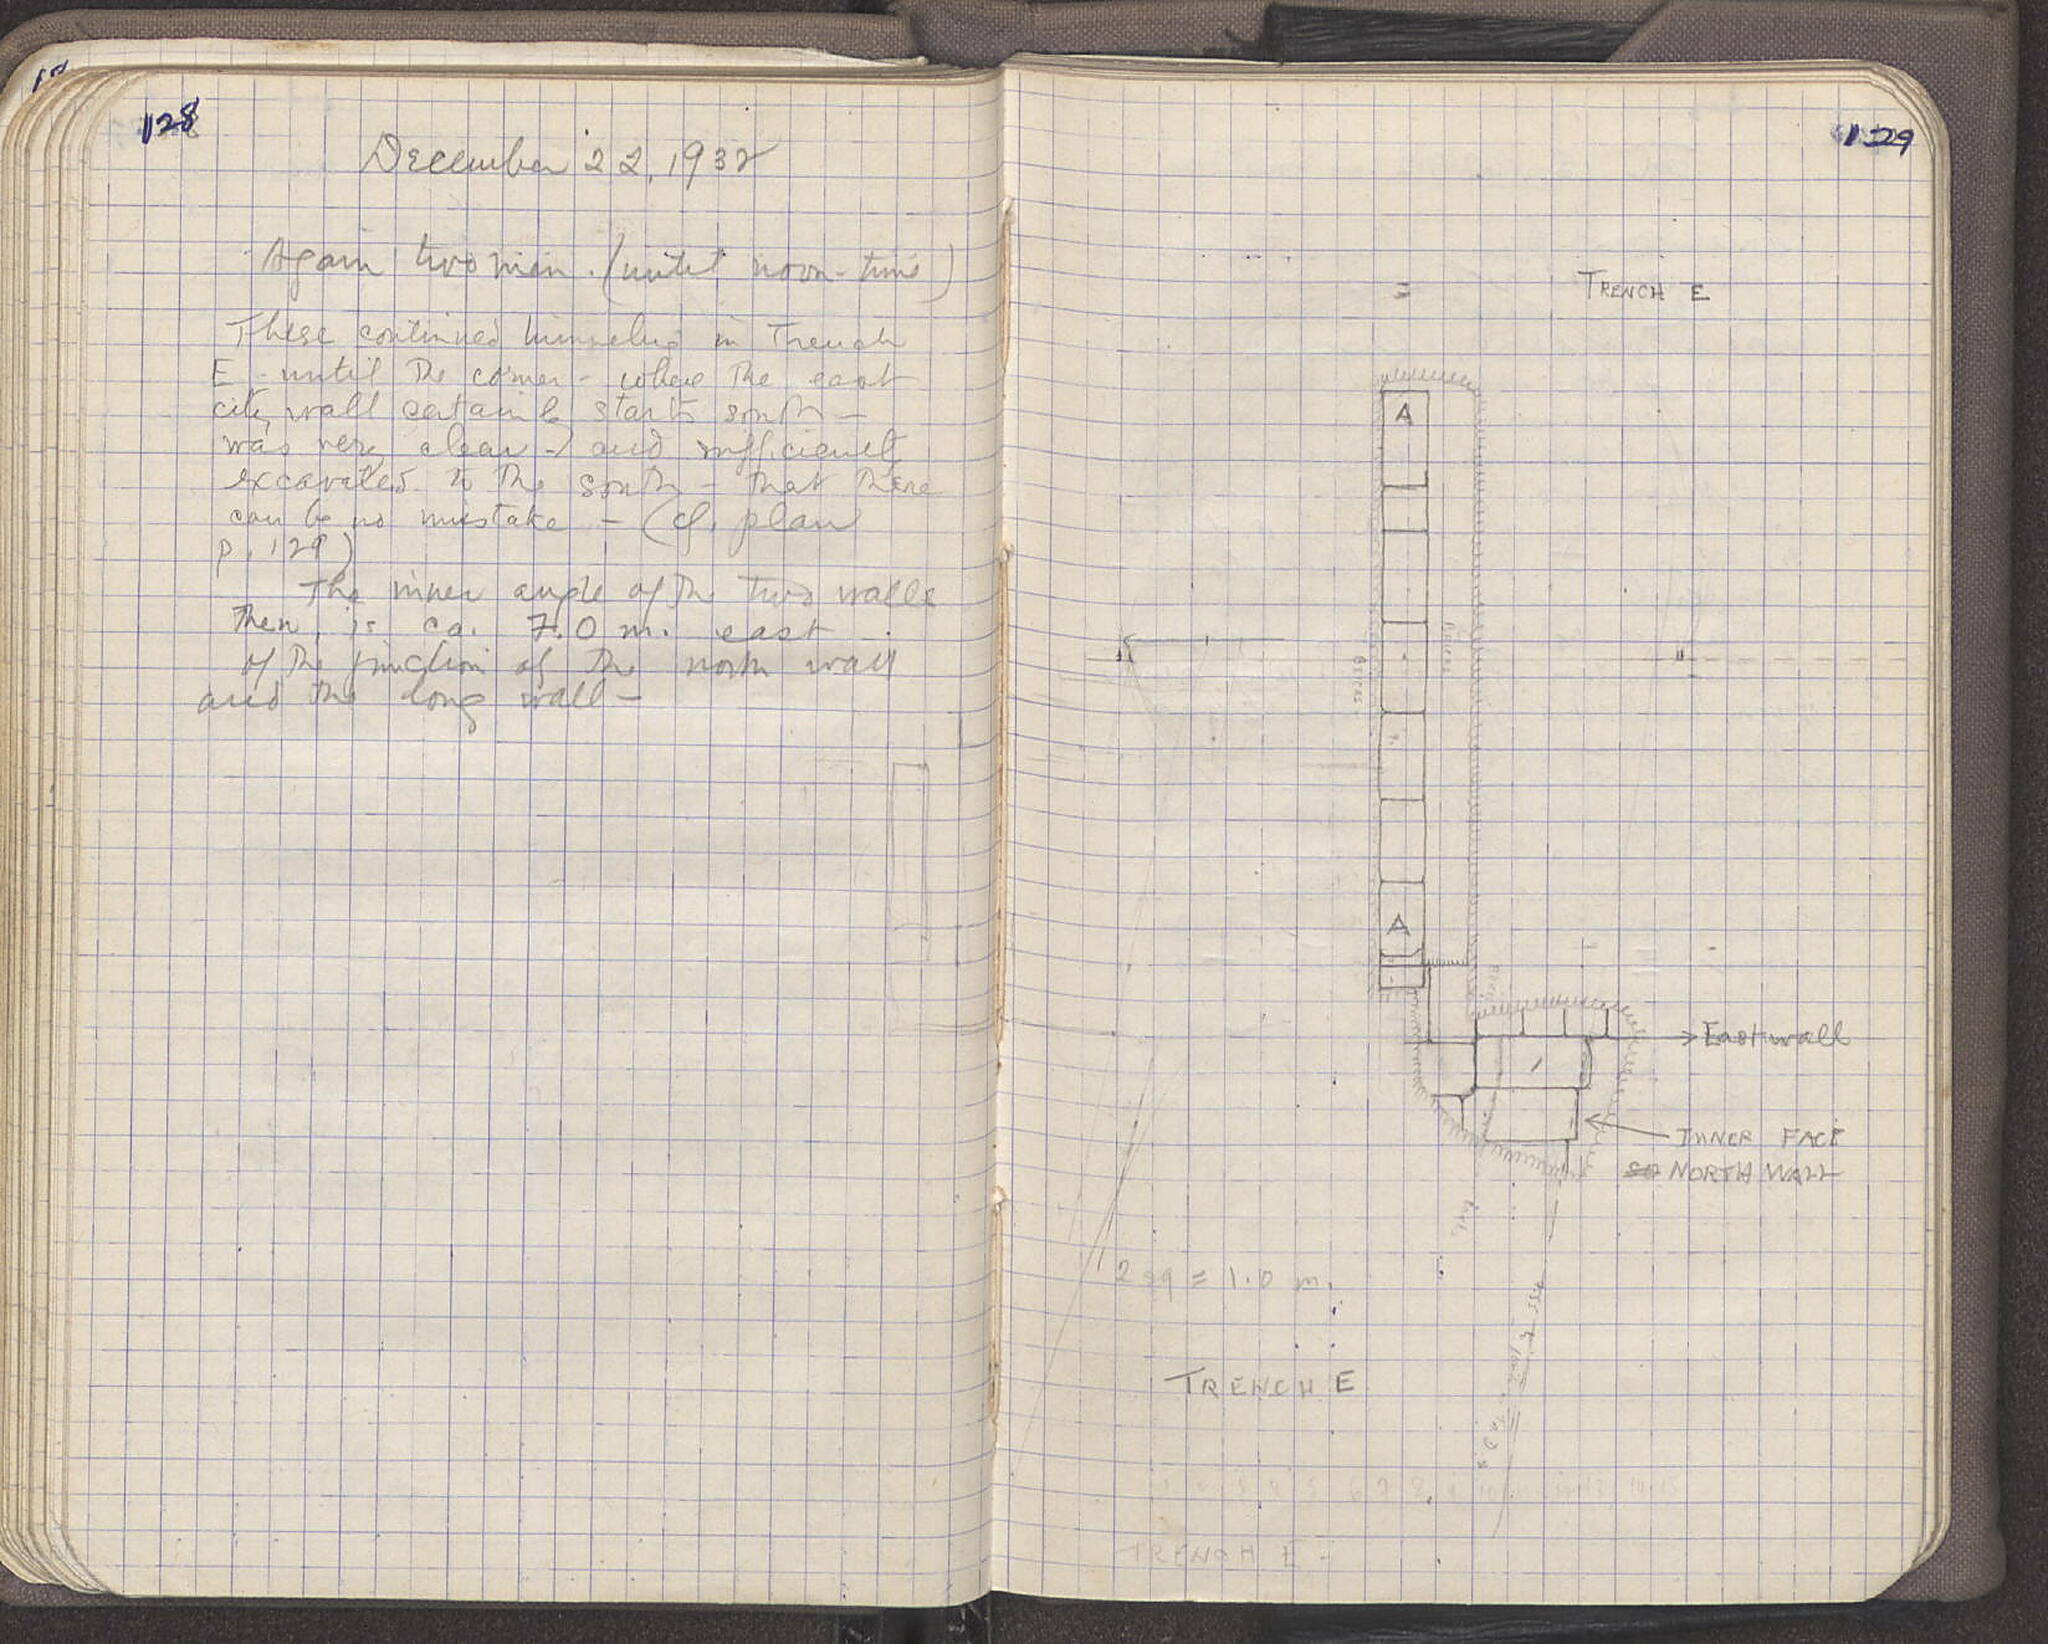 128
December 22, 1932
Again two men. (until noon-time)
These continued tunneling in Trench
E - until the corner - where the east
city wall certainly starts south -
was very clear - and sufficiently
excavated to the south - that there
can be no mistake - (cf. plan
p. 129)
The inner angle of the two walls
then, is ca. 7.0 m. east
of the junction of the north wall
and the long wall -
129
TRENCH E
A
A
East wall
INNER FACE
NORTH WALL
2 sq = 1.0 m.
TRENCH E
6 7 8
TRENCH E -